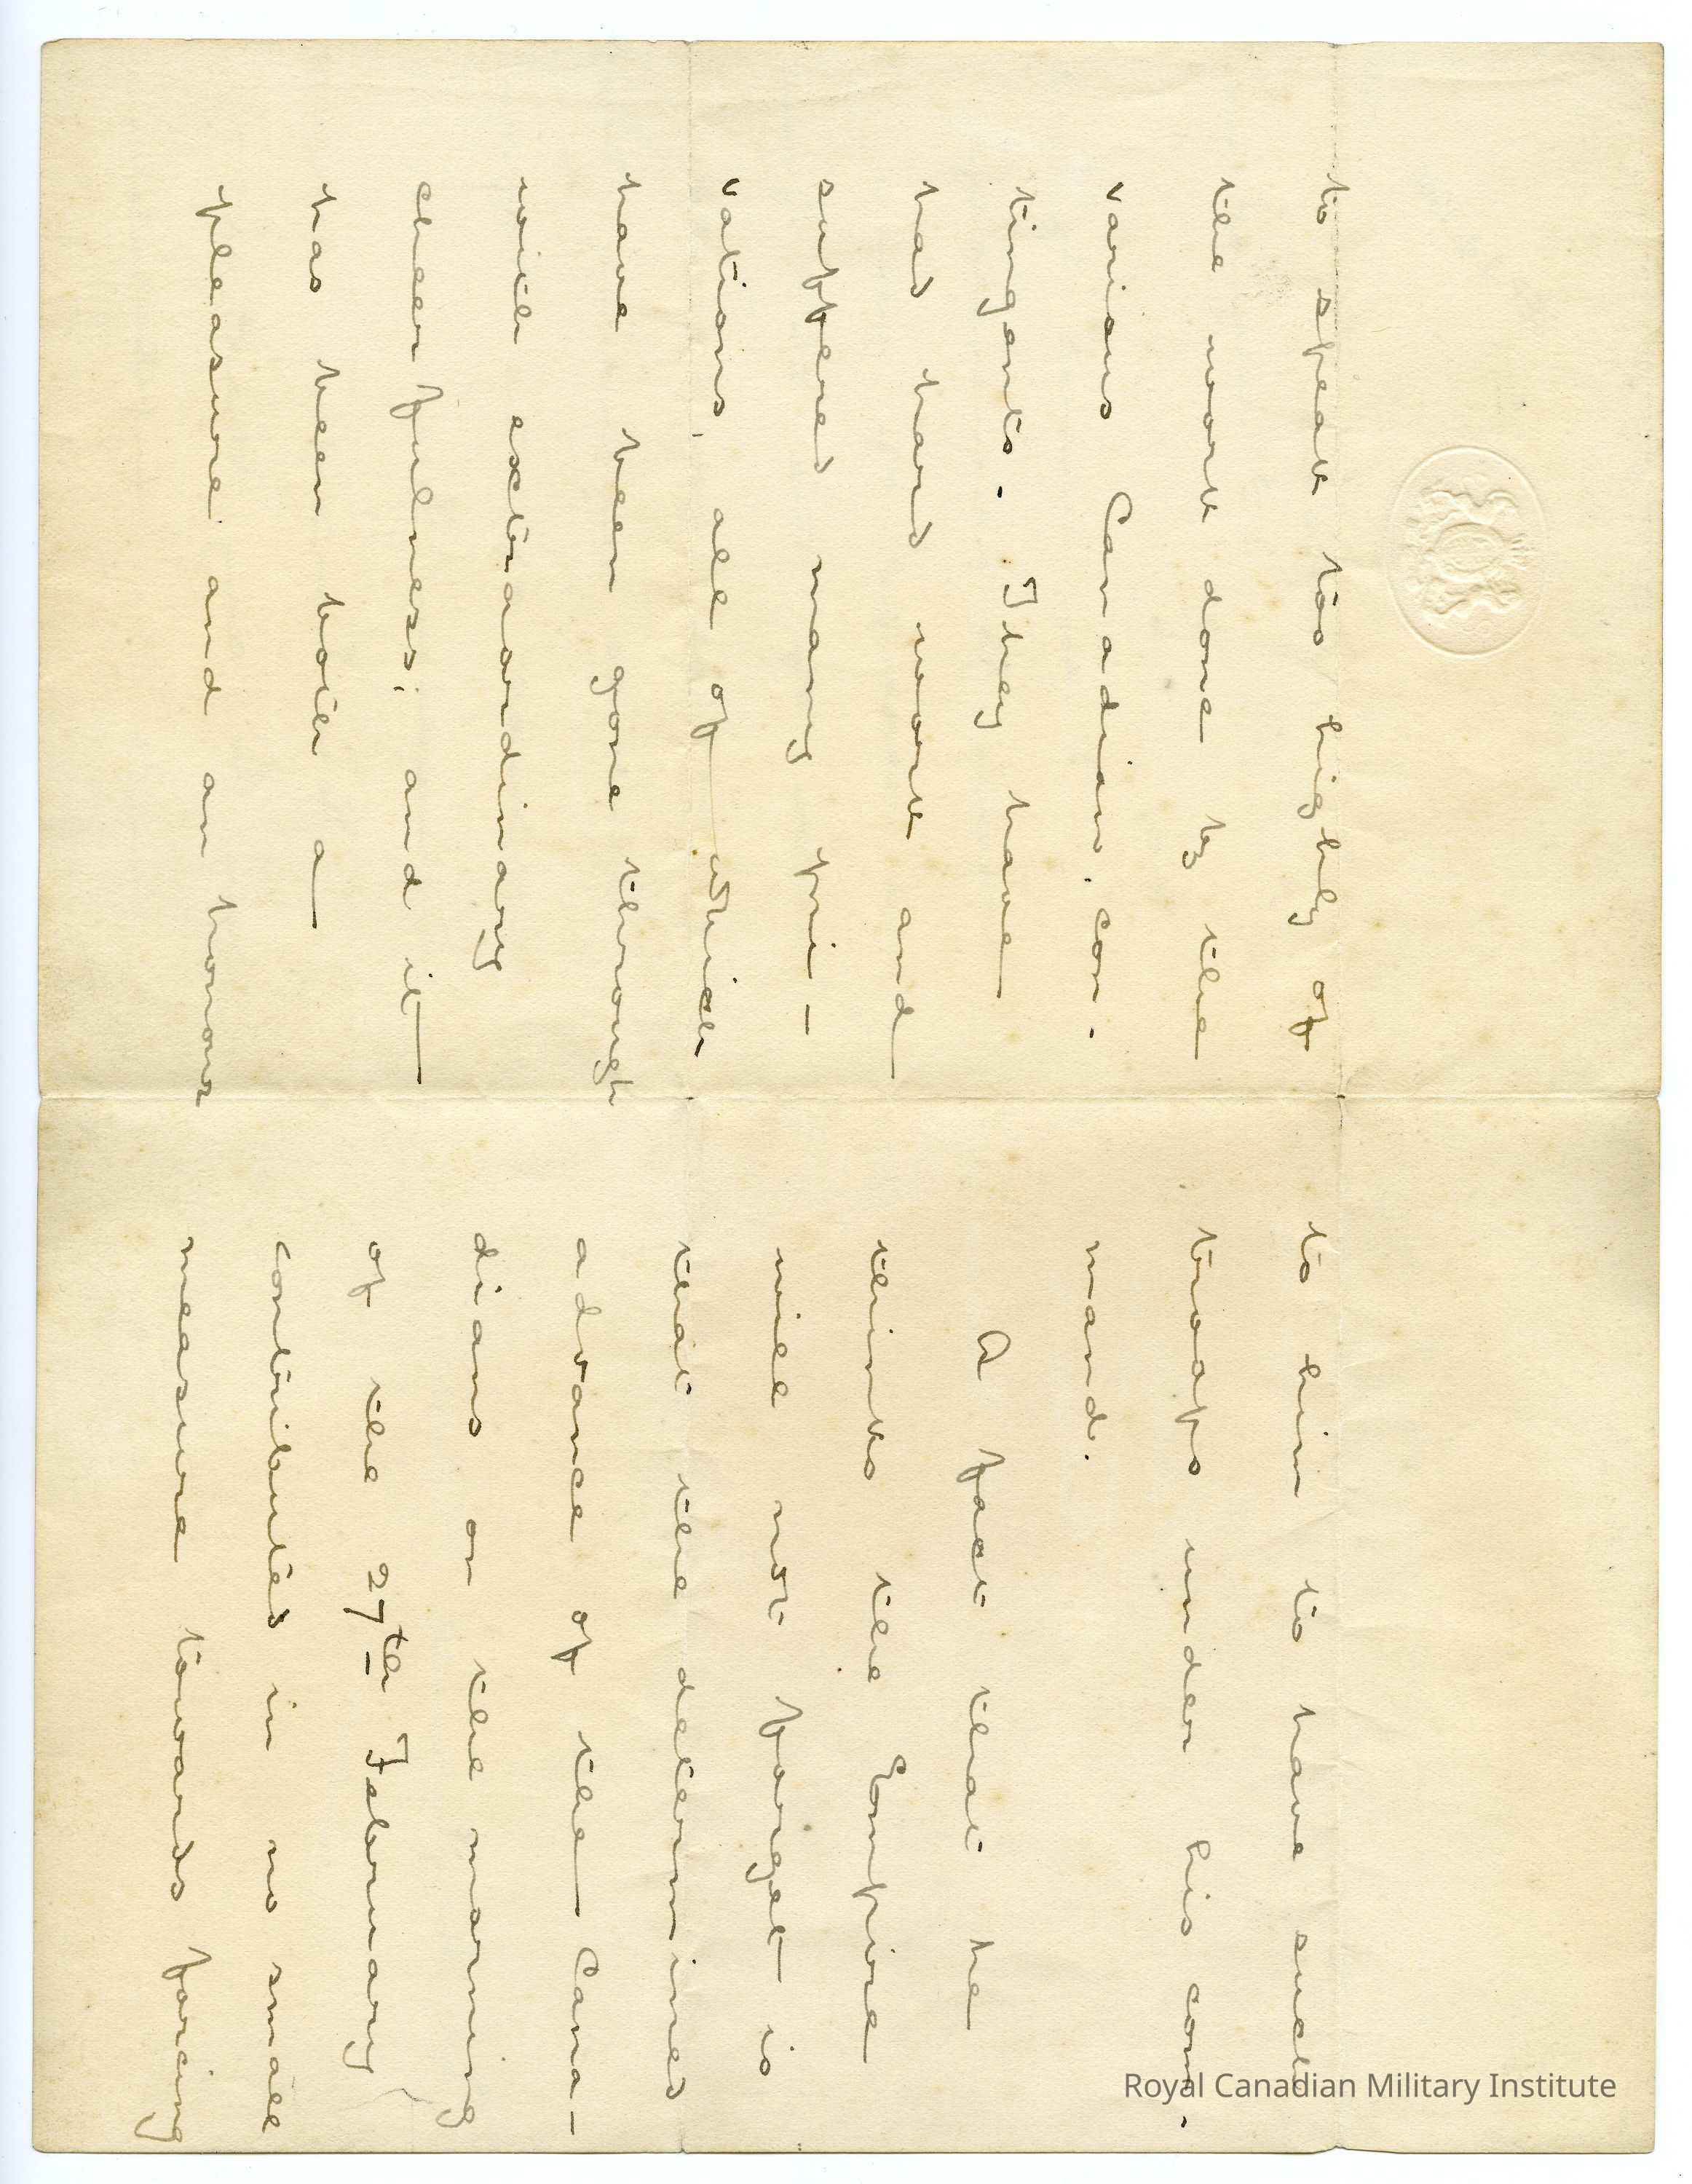 to speak too highly of
the work done by the
various Canadian con-
tingents. They have
had hard work and
suffered many pri-
vations, all of which
have been gone through
with extraordinary
cheerfulness; and it
has been both a
pleasure and an honour
to him to have such
troops under his com-
mand.
A fact that he
thinks the Empire
will not forget is
that the determined
advance of the Cana-
dians on the morning
of the 27th February
contributed in no small
measure towards forcing
Royal Canadian Military Institute